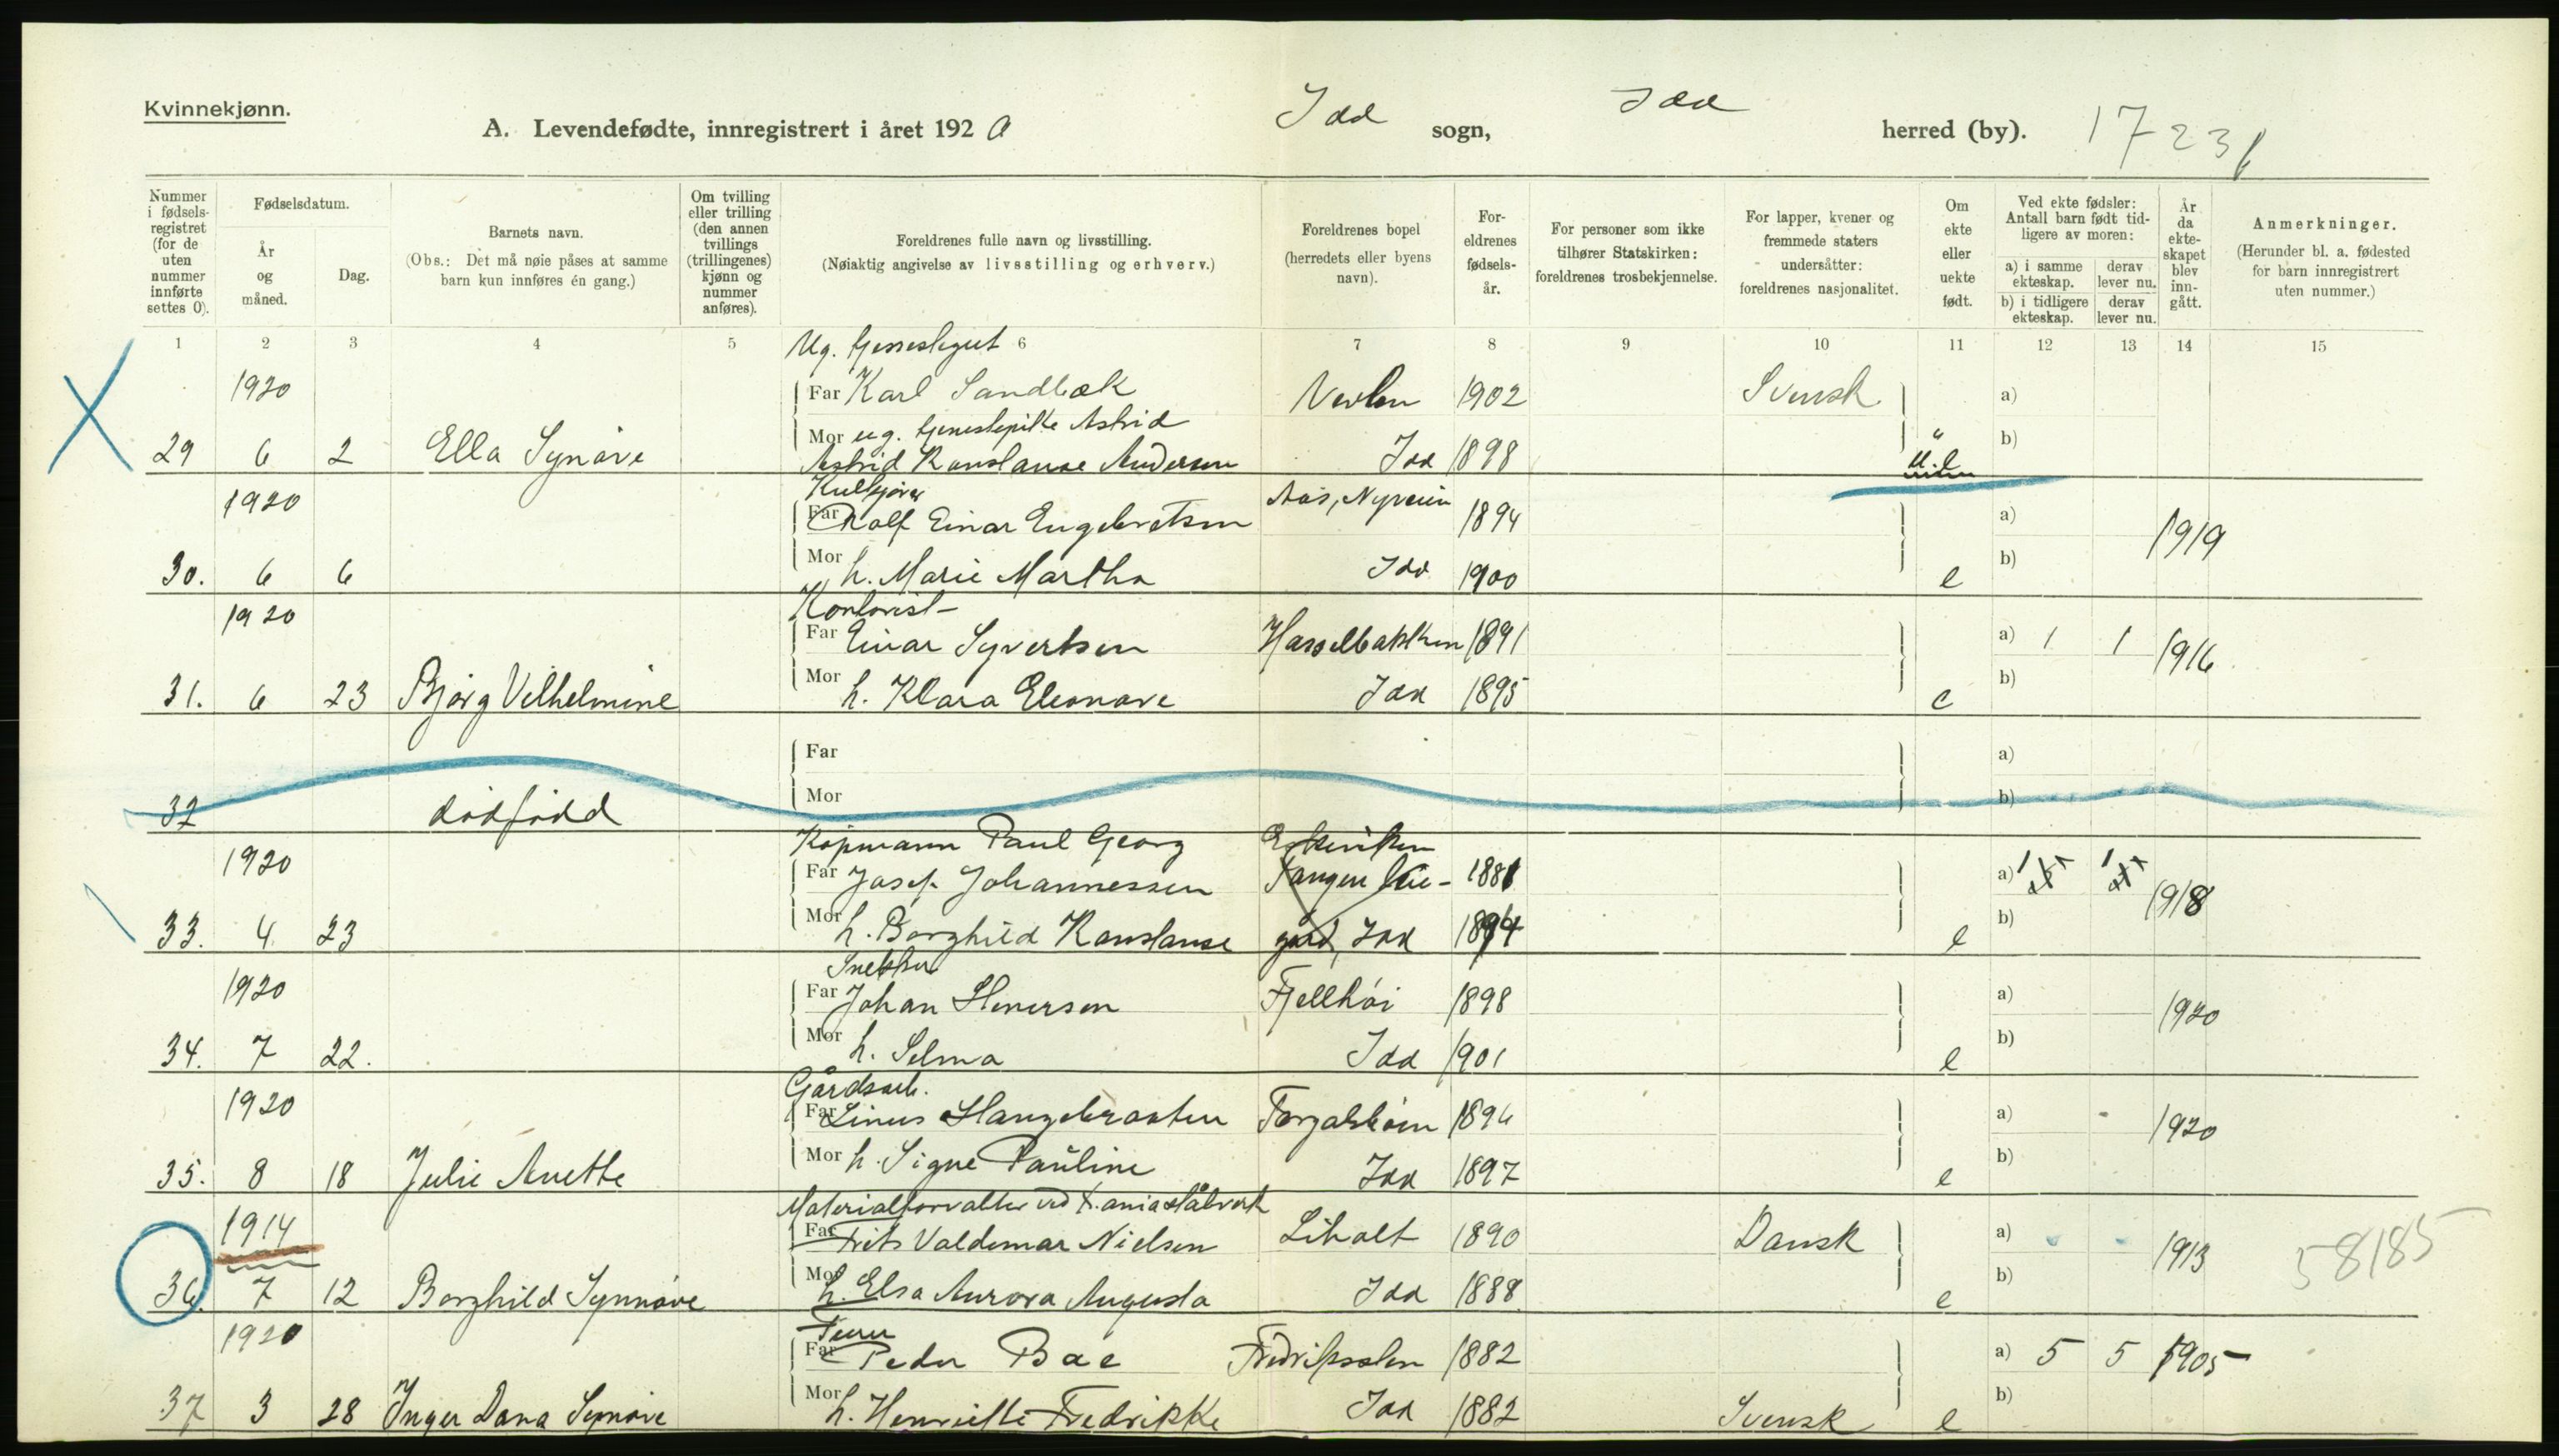 Kvinnekjønn.
A. Levendefødte, innregistrert i året 1920 Idd sogn, Idd herred (by). 1723
Nummer i fødselsregistret (for de uten nummer innførte settes 0).
Fødselsdatum.
År og måned.
Dag.
Barnets navn.
(Obs.: Det må nøie påses at samme barn kun innføres én gang.)
Om tvilling eller trilling (den annen tvillings (trillingenes) kjønn og nummer anføres).
Foreldrenes fulle navn og livsstilling.
(Nøiaktig angivelse av livsstilling og erhverv.)
Foreldrenes bopel (herredets eller byens navn).
Foreldrenes fødselsår.
For personer som ikke tilhører Statskirken: foreldrenes trosbekjennelse.
For lapper, kvener og fremmede staters undersåtter: foreldrenes nasjonalitet.
Om ekte eller uekte født.
Ved ekte fødsler: Antall barn født tidligere av moren:
a) i samme ekteskap. derav lever nu.
b) i tidligere ekteskap. derav lever nu.
År da ekteskapet blev inngått.
Anmerkninger.
(Herunder bl. a. fødested for barn innregistrert uten nummer.)
1 2 3 4 5 6 7 8 9 10 11 12 13 14 15
Ug.
1920 Far Karl Sandbæk 1902 Svensk a)
Mor ug. Astrid b)
29 6 2 Ella Synøve Astrid Konstanse Andersen Idd 1898
1920 Far Rolf Einar Engebretsen Aas, Nyveien 1894 a) 1919
30. 6 6 Mor h. Marie Martha Idd 1900 e b)
Kontorist
1920 Far Einar Syvertsen Hasselbakken 1891 a) 1 1 1916
31. 6 23 Bjørg Vilhelmine Mor h. Klara Eleonore Idd 1895 e b)
Far a)
32 dødfødd Mor b)
Køpmann Paul Georg
1920 Far Josef Johannessen Tangen 1881 a) 1 1 1918
33. 4 23 Mor h. Borghild Konstanse gård, Idd 1894 e b)
Snekker
1920 Far Johan Stenersen Fjellhøi 1898 a) 1920
34. 7 22. Mor h. Selma Idd 1901 e b)
Gårdsarb.
1920 Far Linus 1896 a) 1920
35. 8 18 Julie Anette Mor h. Signe Pauline Idd 1897 e b)
Materialforvalter ved
1914 Far Frits Valdemar Nielsen Liholt 1890 Dansk a) 1913 58185
36. 7 12 Borghild Synnøve Mor h. Elsa Aurora Augusta Idd 1888 e b)
1920 Far Peder Bae 1882 a) 5 5 1905
37 3 28 Inger Dana Synøve Mor h. Henriette Fredrikke Idd 1882 Svensk e b)